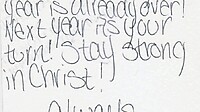 year is already over!
Next year its your
turn!! Stay strong
in Christ!
Always